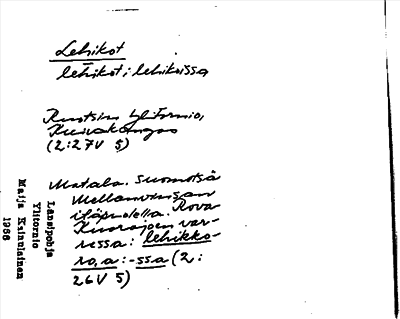 Lehikot
lehikot : lehikoissa
Ruotsin Ylitornio,
Kuivakangas
(2:27V 5)
Matala. Suomaisa
itäpuolella. Rova
Kuorajoen var-
ressa: lehikko-
ro, a: -ssa (2:
26V 5)
Länsipohja
Ylitornio
Maija Kainulainen
1966